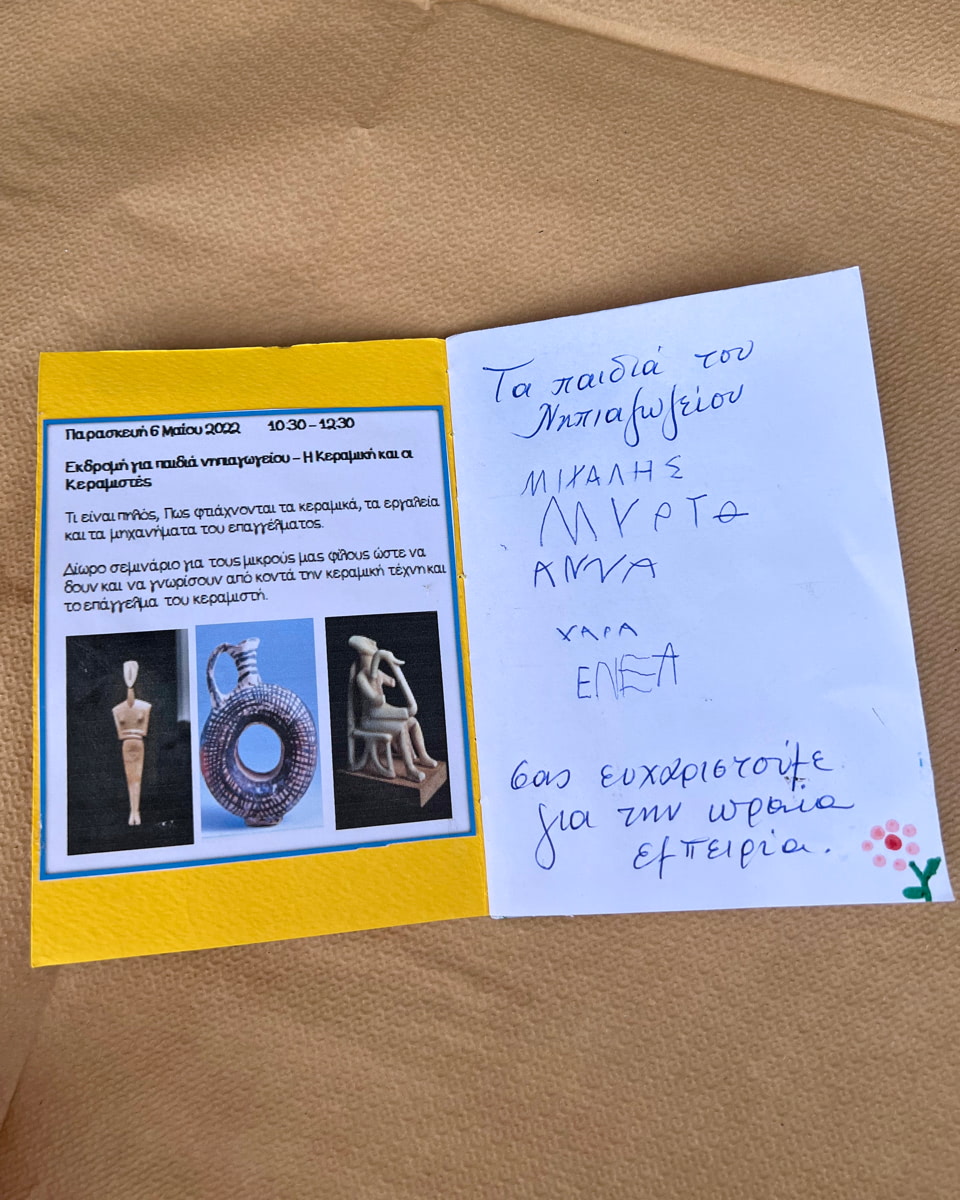 Παρασκευή 6 Μαΐου 2022 10:30 – 12:30
Εκδρομή για παιδιά νηπιαγωγείου – Η Κεραμική και οι
Κεραμιστές
Τι είναι πηλός, Πως φτιάχνονται τα κεραμικά, τα εργαλεία
και τα μηχανήματα του επαγγέλματος.
Δίωρο σεμινάριο για τους μικρούς μας φίλους ώστε να
δουν και να γνωρίσουν από κοντά την κεραμική τέχνη και
το επάγγελμα του κεραμιστή.
Τα παιδιά του
Νηπιαγωγείου
ΜΙΧΑΛΗΣ
ΜΥΡΤΩ
ΑΝΝΑ
ΧΑΡΑ
ΕΝΕΑ
σας ευχαριστούμε
για την ωραία
εμπειρία.